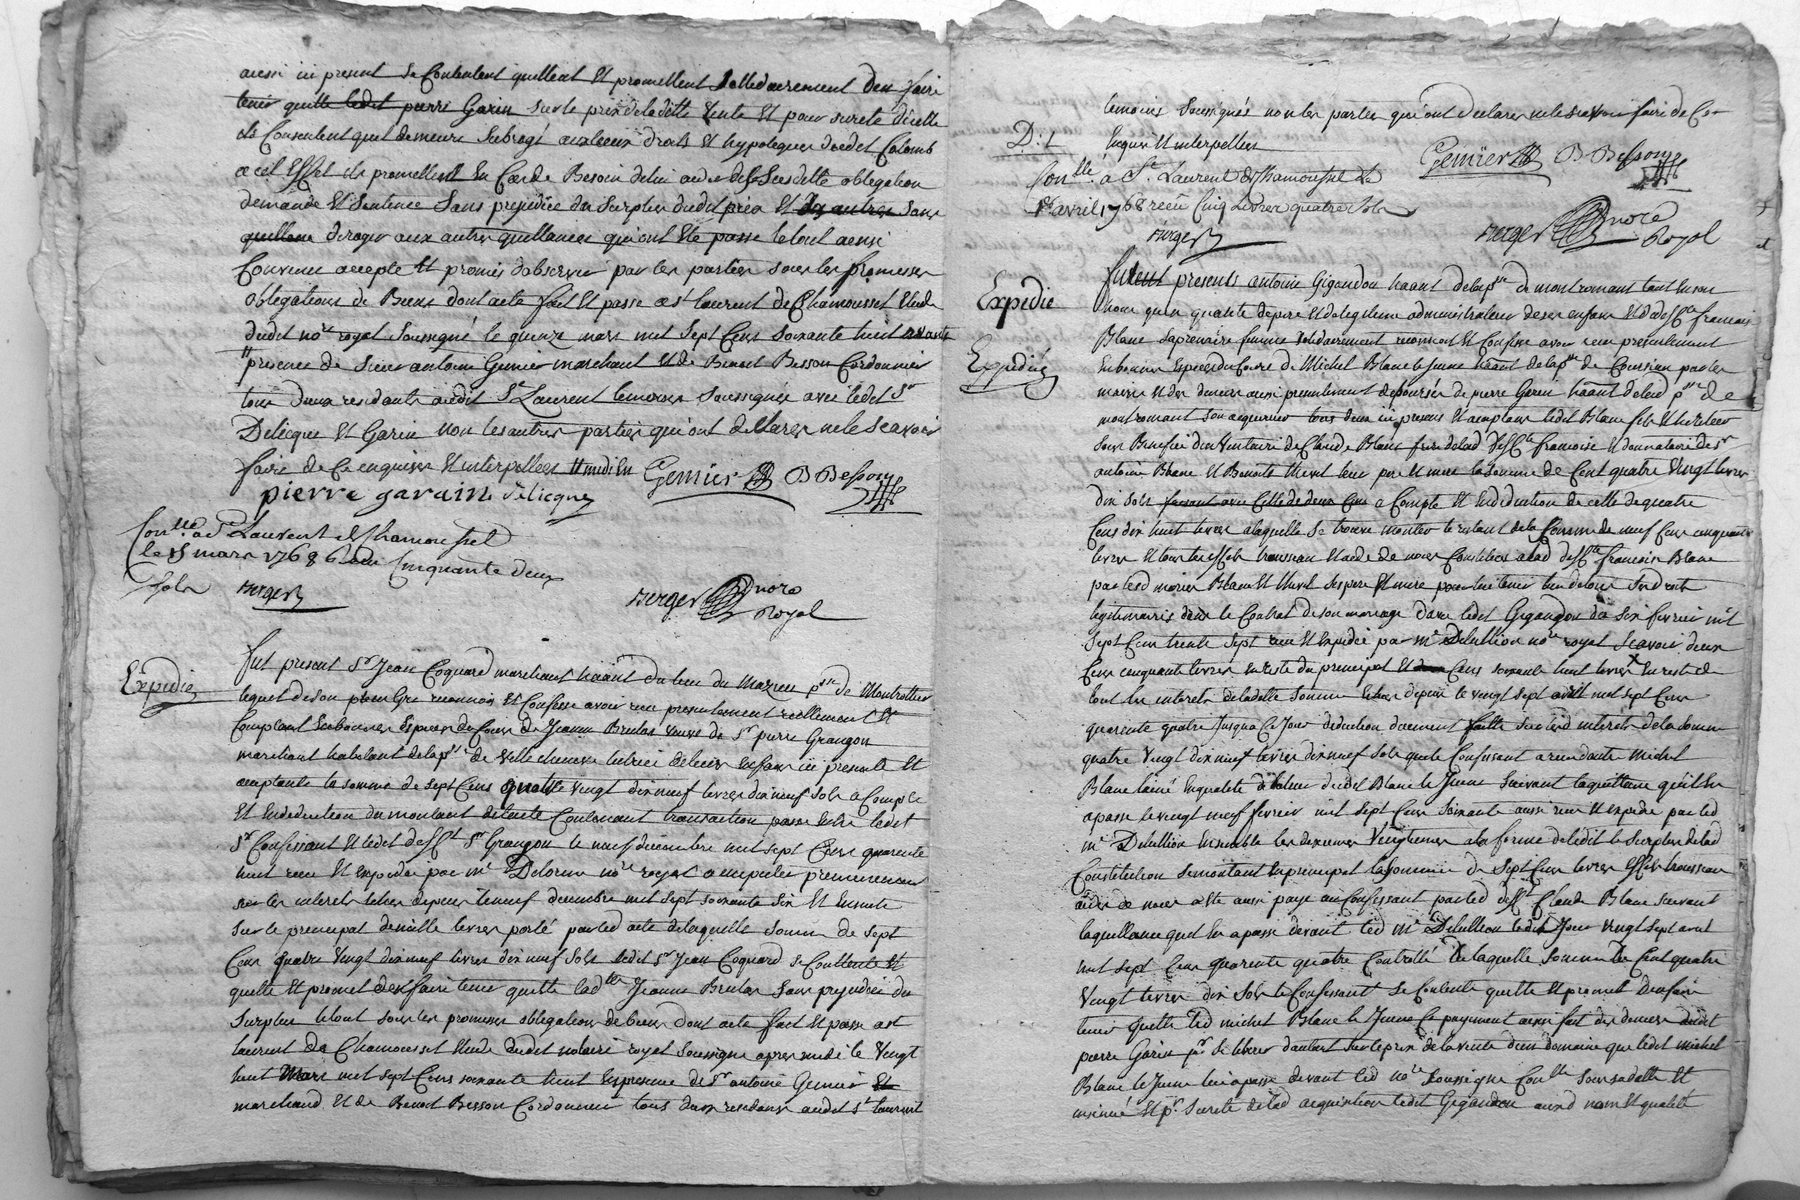 aussi ici present se Contentent quittent Et promettent Sollidairement d'en faire
tenir quitte ledit pierre Garin sur le prix de laditte Vente Et pour sureté d'icelle
ils Consentent quil demeure subrogé aux lieux droits Et hypoteques dudet Colomb
a cet Effet ils promettent En Cas de Besoin de lui aider desd. ditte obligation
demande Et Sentence Sans prejudice du Surplus dudit prix Et des autres sans
quittance deroger aux autres quittances qui ont Eté passé le tout ainsi
Convenu accepté Et promis d'observer par les parties sous les promesses
obligations de Biens dont acte fait Et passé a st laurent de Chamousset Etude
dudit nore royal Soussigné le quinze mars mil Sept Cens Soixante huit avant
presence de Sieur antoine Gemier marchant Et de Benoit Besson Cordonnier
tous deux residants audit St Laurent temoins Soussignés avec ledit Sr
Delicque Et Garin non les autres parties qui ont declarer ne le Scavoir
faire de Ce enquises Et interpellées Gemier B Besson
pierre garain Delicque
Conlle a St Laurent de Chamousset
le 15 mars 1768 Cinquante deux
sols Berger
Berger nore
Royal
Expedie
fut present Sr Jean Coquard marchant haânt du lieu du Mazieu psse de Montrottier
lequel de son plein Gre reconnoit Et Confesse avoir recu presentement reellement Et
Comptant En bonnes Especes du Cours de Jeanne Brulas veuve de Sr pierre Grangon
marchant habitant de la psse de Villechenève tutrice de leurs Enfans ici presente Et
acceptante la somme de sept Cens quatre vingt dix neuf livres dix neuf sols a Compte
Et En deduction du montant de l'acte Contenant transaction passé Entre ledit
Sr Confessant Et ledit defft Sr Grangon le neuf decembre mil sept Cens quarente
huit recu Et Expedié par me Delorme nore royal a imputer premierement
sur les interets echus depuis le neuf decembre mil sept soixante six Et Ensuite
Sur le principal de mille livres porté par led acte de laquelle somme de sept
Cens quatre vingt dix neuf livres dix neuf sols ledit Sr Jean Coquard se Contente Et
quitte Et promet d'en faire tenir quitte lad. Jeanne Brulas Sans prejudice du
Surplus le tout sous les promesses obligations de biens dont acte fait Et passé a st
laurent de Chamousset Etude dudit notaire royal soussigné apres midi le Vingt
huit Mars mil sept Cens soixante huit En presence de Sr antoine Gemier Et
marchand Et de Benoit Besson Cordonnier tous deux residans audit St laurent
temoins Soussignés non les parties qui ont declarer ne le scavoir faire de Ce
D: L
Enquis Et interpellées
Gemier B Besson
Conlle a St Laurent de Chamousset le
avril 1768 recu Cinq livres quatre sols
Berger
Berger nore
Royal
Expedie
Expedié
furent presents antoine Gigandon haânt de la psse de montromant tant En son
nom qu'en qualité de pere Et de legitime administrateur de ses enfans Et de deffte francoise
Blanc sa premiere femme solidairement reconnoit Et Confesse avoir recu presentement
En bonnes Especes du Cours de Michel Blanc le jeune haânt de la psse de Coursieu par les
mains Et des deniers aussi presentement deboursés de pierre Garin haânt de lad psse de
montromant son acquereur tous deux ici presens Et acceptans ledit Blanc fils Et heritier
sous Benefice d'inventaire de Claude Blanc frere de lad deffte francoise Et donnataire de
antoine Blanc Et Benoite leur pere Et mere la somme de Cent quatre vingt livres
dix sols faisant avec Celle de deux Cens a Compte Et En deduction de celle de quatre
Cens dix huit livres a laquelle se trouve monter le restant de la Somme de neuf Cens cinquante
livres Et tous les effets trousseau Et aide de noces Constitués a lad deffte francoise Blanc
par lesd mariés Blanc Et ses pere Et mere pour lui tenir lieu de tous ses droits
legitimaires dans le Contrat de son mariage d'avec ledit Gigandon du six fevrier mil
Sept Cens trente sept recu Et expedié par me Delullion nore royal scavoir deux
Cens cinquante livres En reste du principal Et Cens soixante huit livres En reste de
tout les interets de ladite somme Echus depuis le vingt sept avril mil sept Cens
quarente quatre jusqua Ce jour deduction duement faitte sur lesd interets de la somme
quatre vingt dix neuf livres dix neuf sols que le Confessant a recu dudit Michel
Blanc laîné En qualité de tuteur dudit Blanc le jeune suivant la quittance qu'il En
a passé le vingt neuf fevrier mil sept Cens soixante aussi recu Et expedié par led
me Delullion Ensemble les dixiemes vingtiemes a la forme de l'edit le Surplus de lad
Constitution Se montant En principal la Somme de Sept Cens livres Effets trousseau
aides de noces a Eté aussi payé au Confessant par led defft Claude Blanc suivant
la quittance quil En a passé devant led me Delullion ledit jour Vingt sept avril
mil sept Cens quarente quatre Controllé de laquelle Somme de Cent quatre
vingt livres dix sols le Confessant se Contente quitte Et promet d'en faire
tenir quitte led michel Blanc le jeune Ce payement ainsi fait des deniers dudit
pierre Garin pr se liberer d'autant sur le prix de la vente d'un domaine que ledit michel
Blanc le jeune lui a passé devant led nore Soussigné Conlle Et
insinué Et pr Sureté de lad acquisition ledit Gigandon aud nom Et qualité